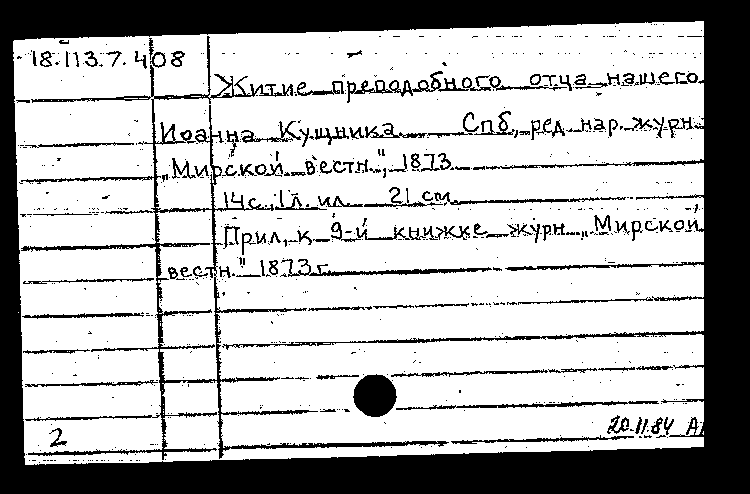 18.113.7.408
Житие преподобного отца нашего
Иоанна Кущника. Спб., ред. нар. журн.
„Мирской вестн.", 1873.
14 с., 1 л. ил. 21 см.
Прил. к 9-й книжке журн. „Мирской
вестн." 1873 г.
2
20.11.84